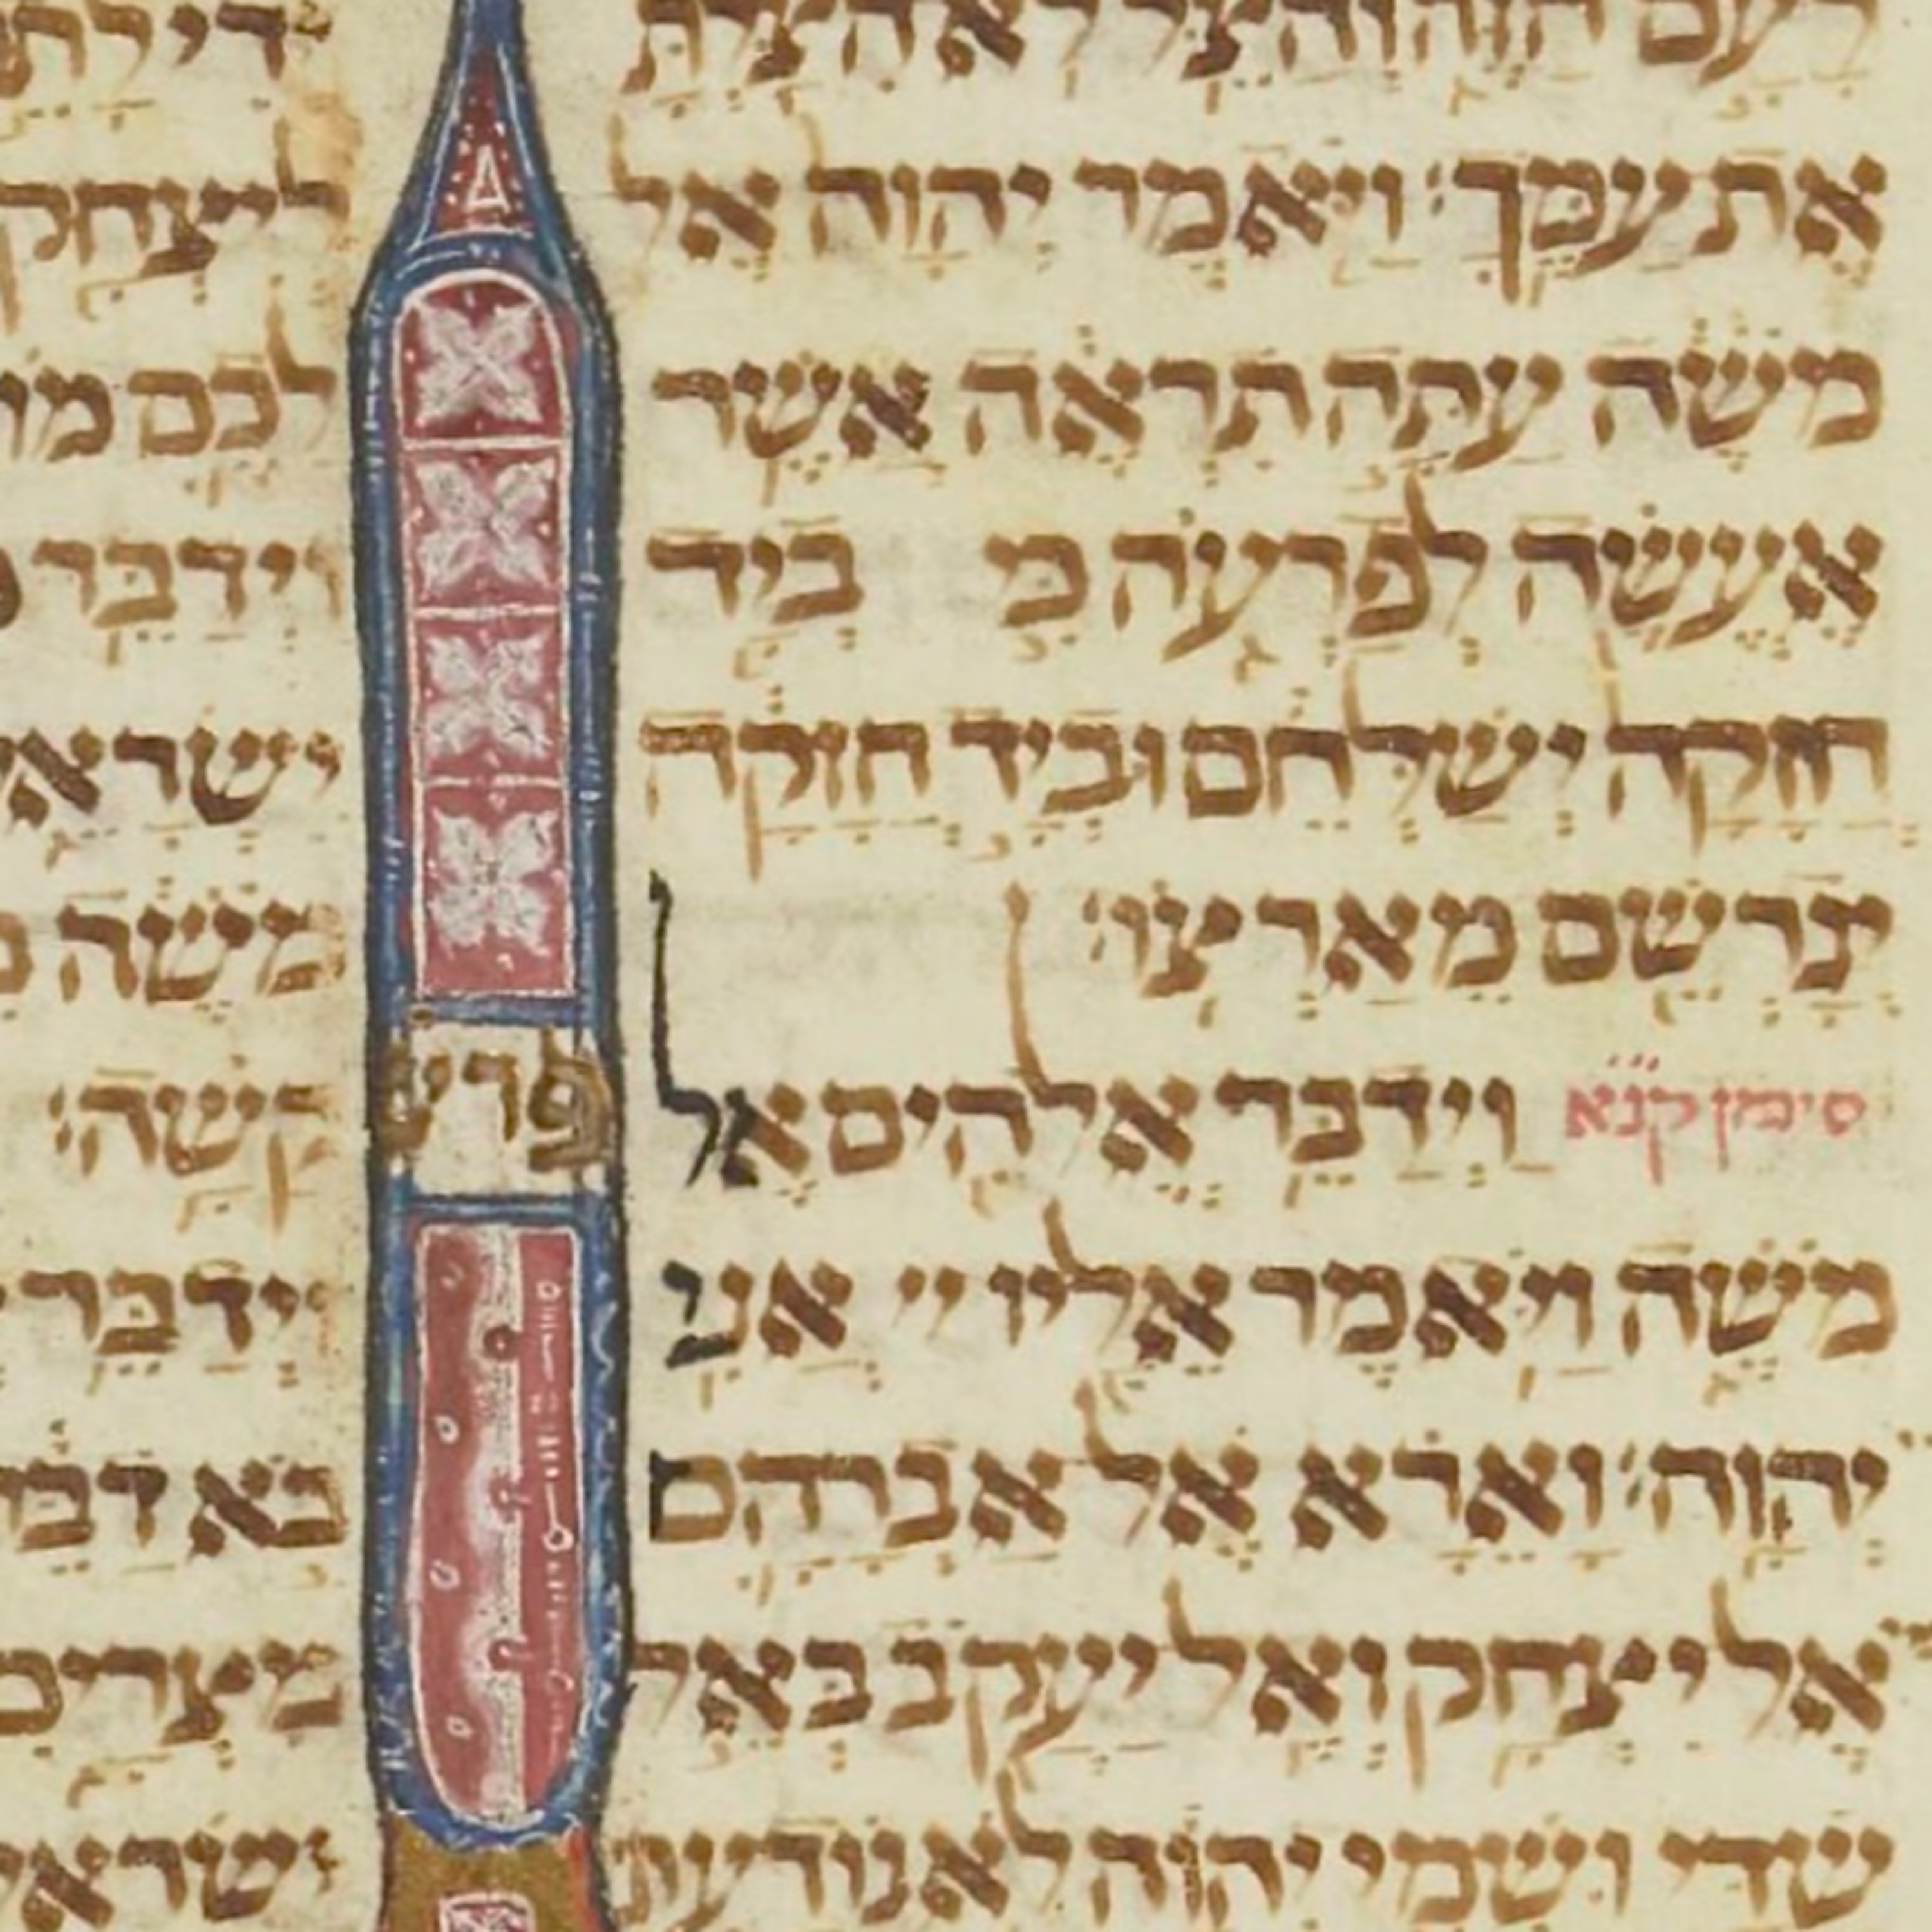 לעם הזה והצל לא הצלת
את עמך׃ ויאמר יהוה אל
משה עתה תראה אשר
אעשה לפרעה כי ביד
חזקה ישלחם וביד חזקה
יגרשם מארצו׃
סימן קנא וידבר אלהים אל
משה ויאמר אליו יי אני
יהוה׃ וארא אל אברהם
אל יצחק ואל יעקב באל
שדי ושמי יהוה לא נודעת
פרש
ידי לת
ליצחק
לכם מו
וידבר
ישרא
משה
קשה׃
וידבר
בא דב
מצרים
ישרא